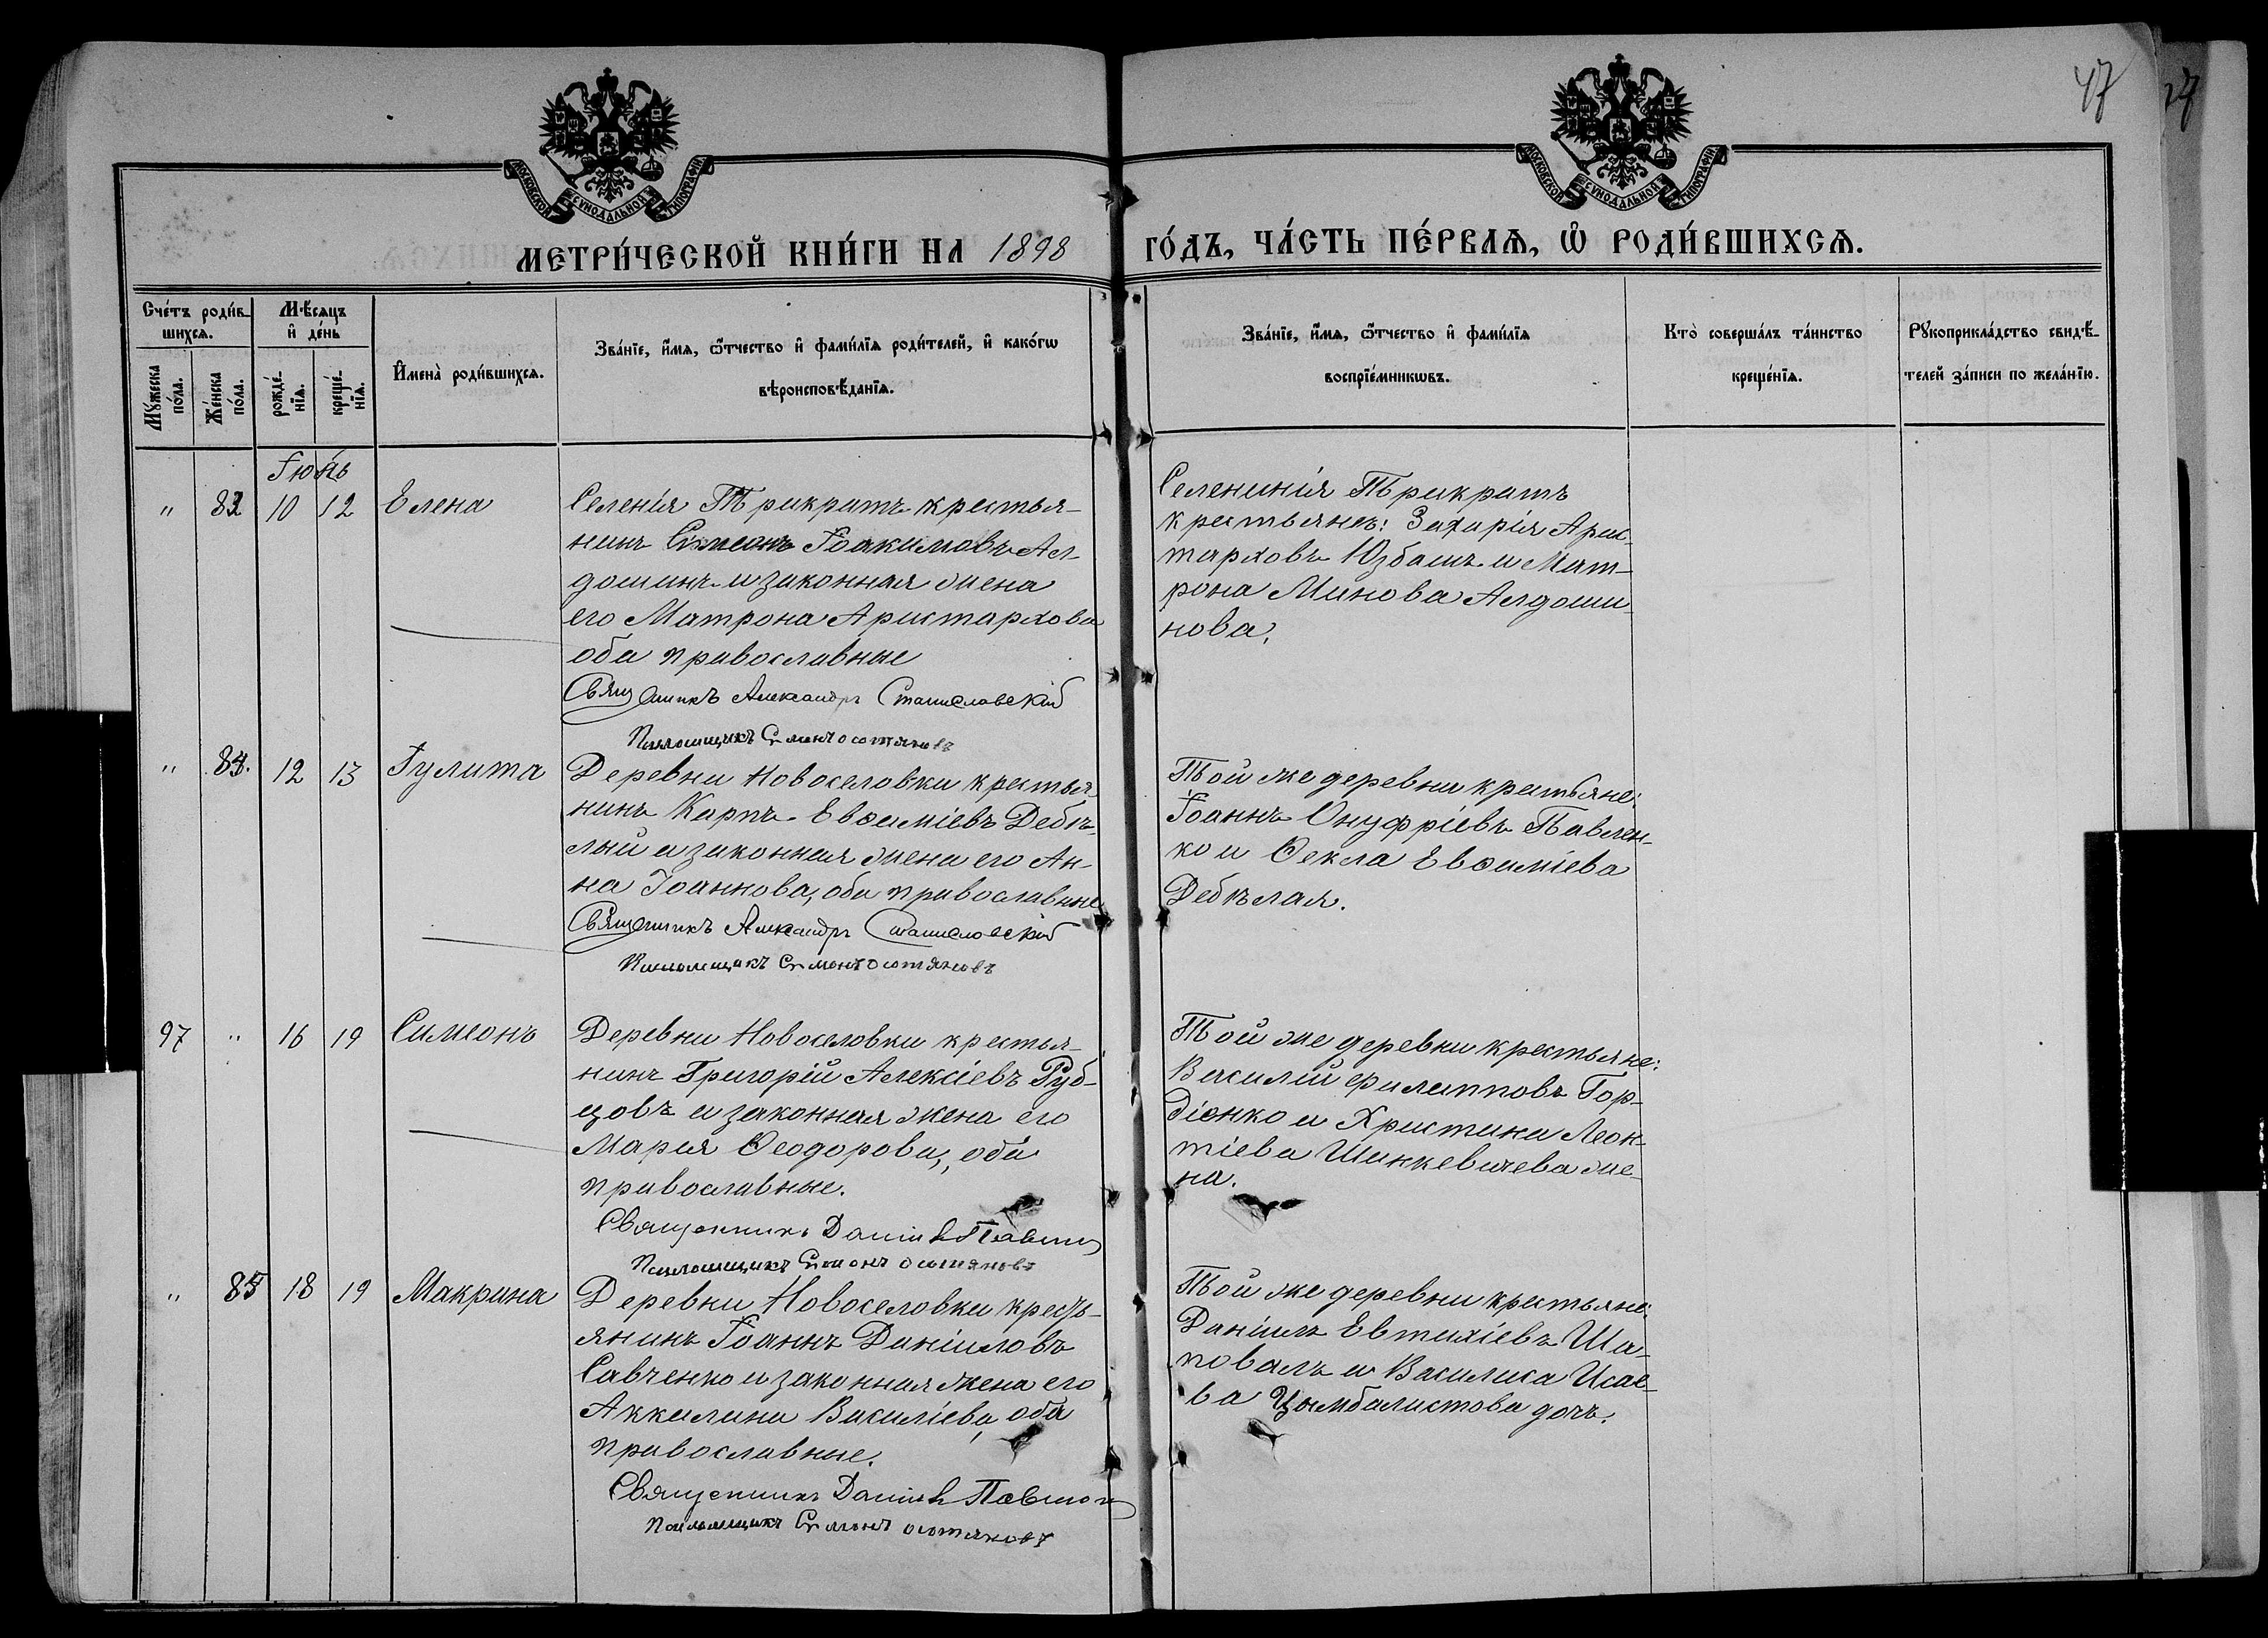 47
МОСКОВСКОЙ СѴНОДАЛЬНОЙ ТИПОГРАФІИ
МОСКОВСКОЙ СѴНОДАЛЬНОЙ ТИПОГРАФІИ
МЕТРИ́ЧЕСКОЙ КНИ́ГИ НА 1898 ГО́ДЪ, ЧА́СТЬ ПЕ́РВАѦ, Ѡ҆ РОДИ́ВШИХСѦ.
Сче́тъ роди́в-
шихсѧ.
Мѣ́сяцъ
и҆ де́нь
Мꙋ́жеска
по́ла.
Же́нска
по́ла.
рожде́-
нїѧ.
креще́-
нїѧ.
И҆мена̀ роди́вшихсѧ.
Зва́нїе, и҆́мѧ, ѻ҆́тчество и҆ фами́лїѧ роди́телей, и҆ како́гѡ
вѣроисповѣ́данїѧ.
Зва́нїе, и҆́мѧ, ѻ҆́тчество и҆ фами́лїѧ
воспрїе́мникѡвъ.
Кто̀ соверша́лъ та́инство
креще́нїѧ.
Рꙋкоприкла́дство свидѣ́-
телей за́писи по жела́нїю.
Іюнь
" 83 10 12 Елена
Селенія Трикратъ крестья-
нинъ Симеонъ Іоакимовъ Ал-
дошинъ и законная жена
его Матрона Аристархова
оба православные
Священникъ Александръ Станиславскій
Псаломщикъ Симонъ Остяновъ
Селенинія Трикратъ
крестьяне: Захарія Арис-
тарховъ Юзбашъ и Мат-
рона Минова Алдоши-
нова.
" 84. 12 13 Іулита
Деревни Новоселовки крестья-
нинъ Карпъ Евѳиміевъ Дебѣ-
лый и законная жена его Ан-
на Іоаннова, оба православные
Священникъ Александръ Станиславскій
Псаломщикъ Симонъ Остяновъ
Той же деревни крестьяне:
Іоаннъ Онуфріевъ Павлен-
ко и Ѳекла Евѳиміева
Дебѣлая.
97 " 16 19 Симеонъ
Деревни Новоселовки крестья-
нинъ Григорій Алексіевъ Руб-
цовъ и законная жена его
Марія Ѳеодорова, оба
православные.
Священникъ Даніилъ
Псаломщикъ Симонъ Остяновъ
Той же деревни крестьяне:
Василій Филипповъ Гор-
діенко и Христина Леон-
тіева Шинкевичева же-
на.
" 85 18 19 Макрина
Деревни Новоселовки кресть-
янинъ Іоаннъ Даніиловъ
Савченко и законная жена его
Аккилина Василіева, оба
православные.
Священникъ Даніилъ
Псаломщикъ Симонъ Остяновъ
Той же деревни крестьяне:
Даніилъ Евтихіевъ Ша-
повалъ и Василиса Исае-
ва Цымбалистова дочь.